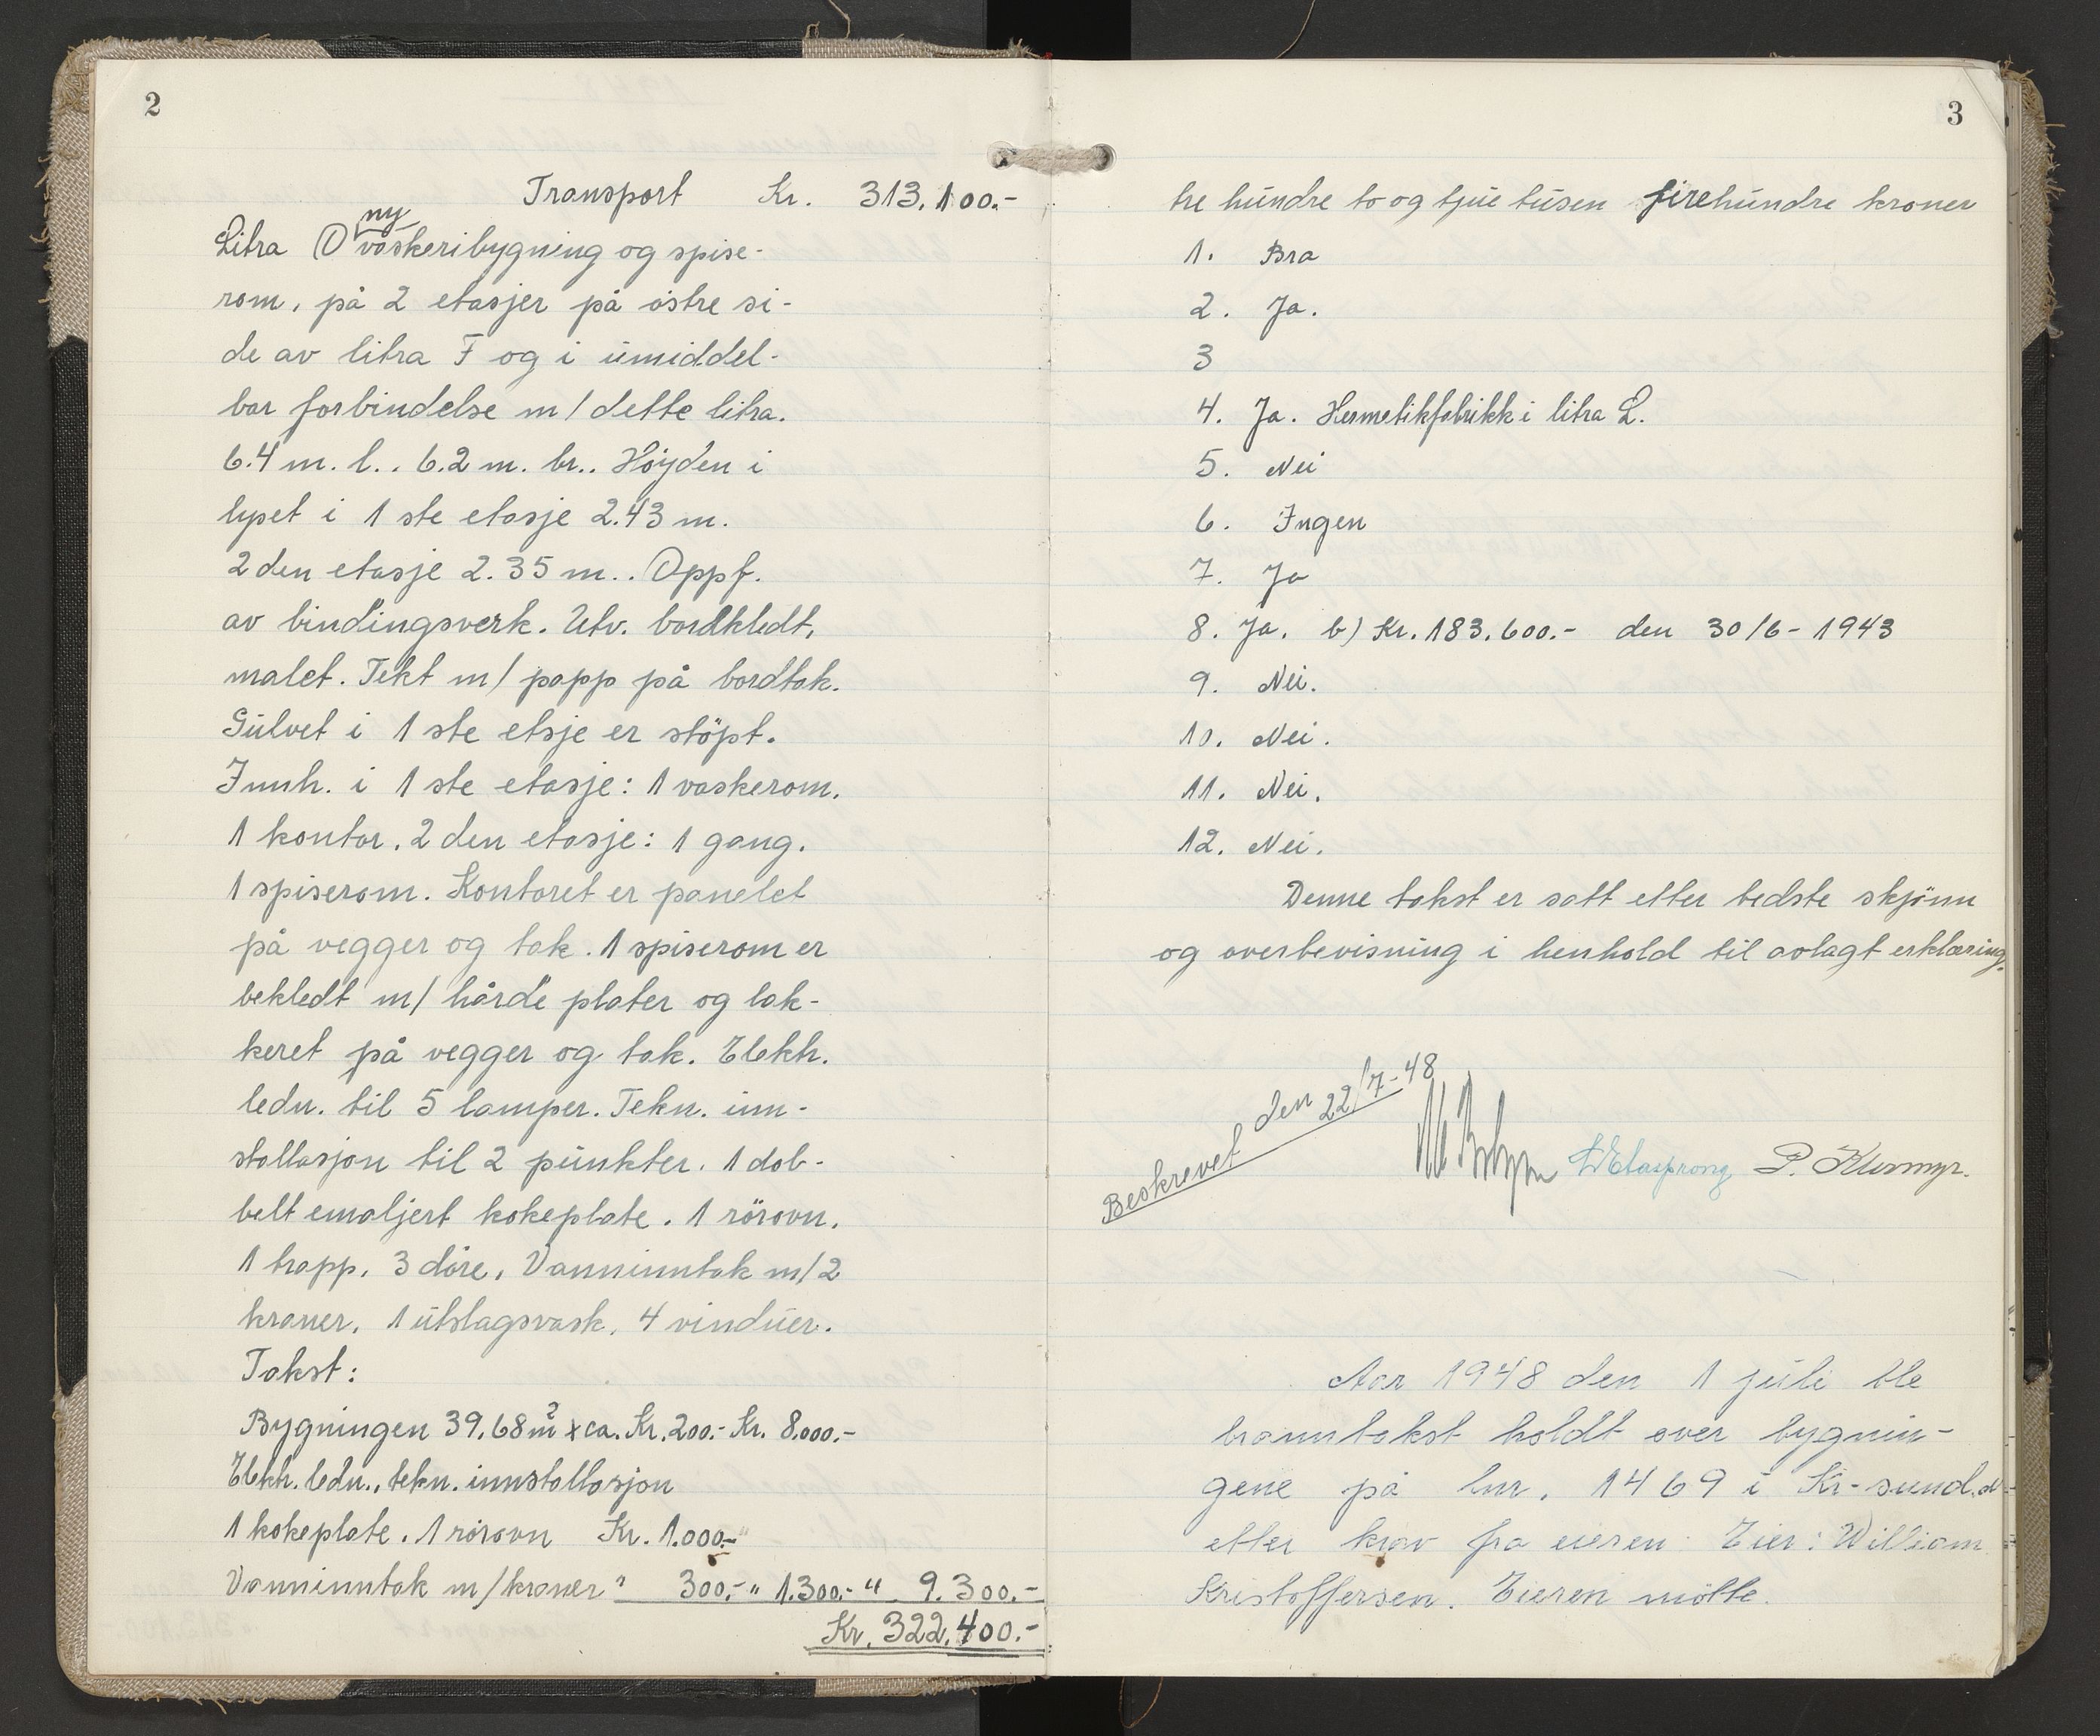 2
Transport Kr. 313.100.-
ny
Litra O vaskeribygning og spise-
rom, på 2 etasjer på östre si-
de av litra F og i umiddel-
bar forbindelse m/ dette litra.
6.4 m. l.. 6.2 m. br.. Höyden i
lyset i 1 ste etasje 2.43 m.
2 den etasje 2.35 m.. Oppf.
av bindingsverk. Utv. bordkledt,
malet. Tekt m/ papp på bordtak.
Gulvet i 1 ste etsje er stöpt.
Innh. i 1 ste etasje: 1 vaskerom.
1 kontor. 2 den etasje: 1 gang.
1 spiserom. Kontoret er panelet
på vegger og tak. 1 spiserom er
bekledt m/ hårde plater og lak-
keret på vegger og tak. Elektr.
ledn. til 5 lamper. Tekn. inn-
stallasjon til 2 punkter. 1 dob-
belt emaljert kokeplate. 1 rörovn.
1 trapp, 3 döre, Vanninntak m/ 2
kraner, 1 utslagsvask, 4 vinduer.
Takst:
Bygningen 39,68 m² x ca. Kr. 200.- Kr. 8.000.-
Elektr. ledn., tekn. innstallasjon
1 kokeplate. 1 rörovn Kr. 1.000.-
Vanninntak m/kraner " 300.- " 1.300.- " 9.300.-
Kr. 322.400.-
3
tre hundre to og tjue tusen firehundre kroner
1. Bra
2. Ja.
3
4. Ja. Hermetikfabrikk i litra L.
5. Nei
6. Ingen
7. Ja
8. Ja. b) Kr. 183.600.- den 30/6-1943
9. Nei.
10. Nei.
11. Nei.
12. Nei.
Denne takst er satt etter bedste skjönn
og overbevisning i henhold til avlagt erklæring.
Beskrevet den 22/7-48
P.
Aar 1948 den 1 juli ble
branntakst holdt over bygnin-
gene på lnr. 1469 i Kr-sund.
etter krav fra eieren. Eier: William
Kristoffersen. Eieren mötte.